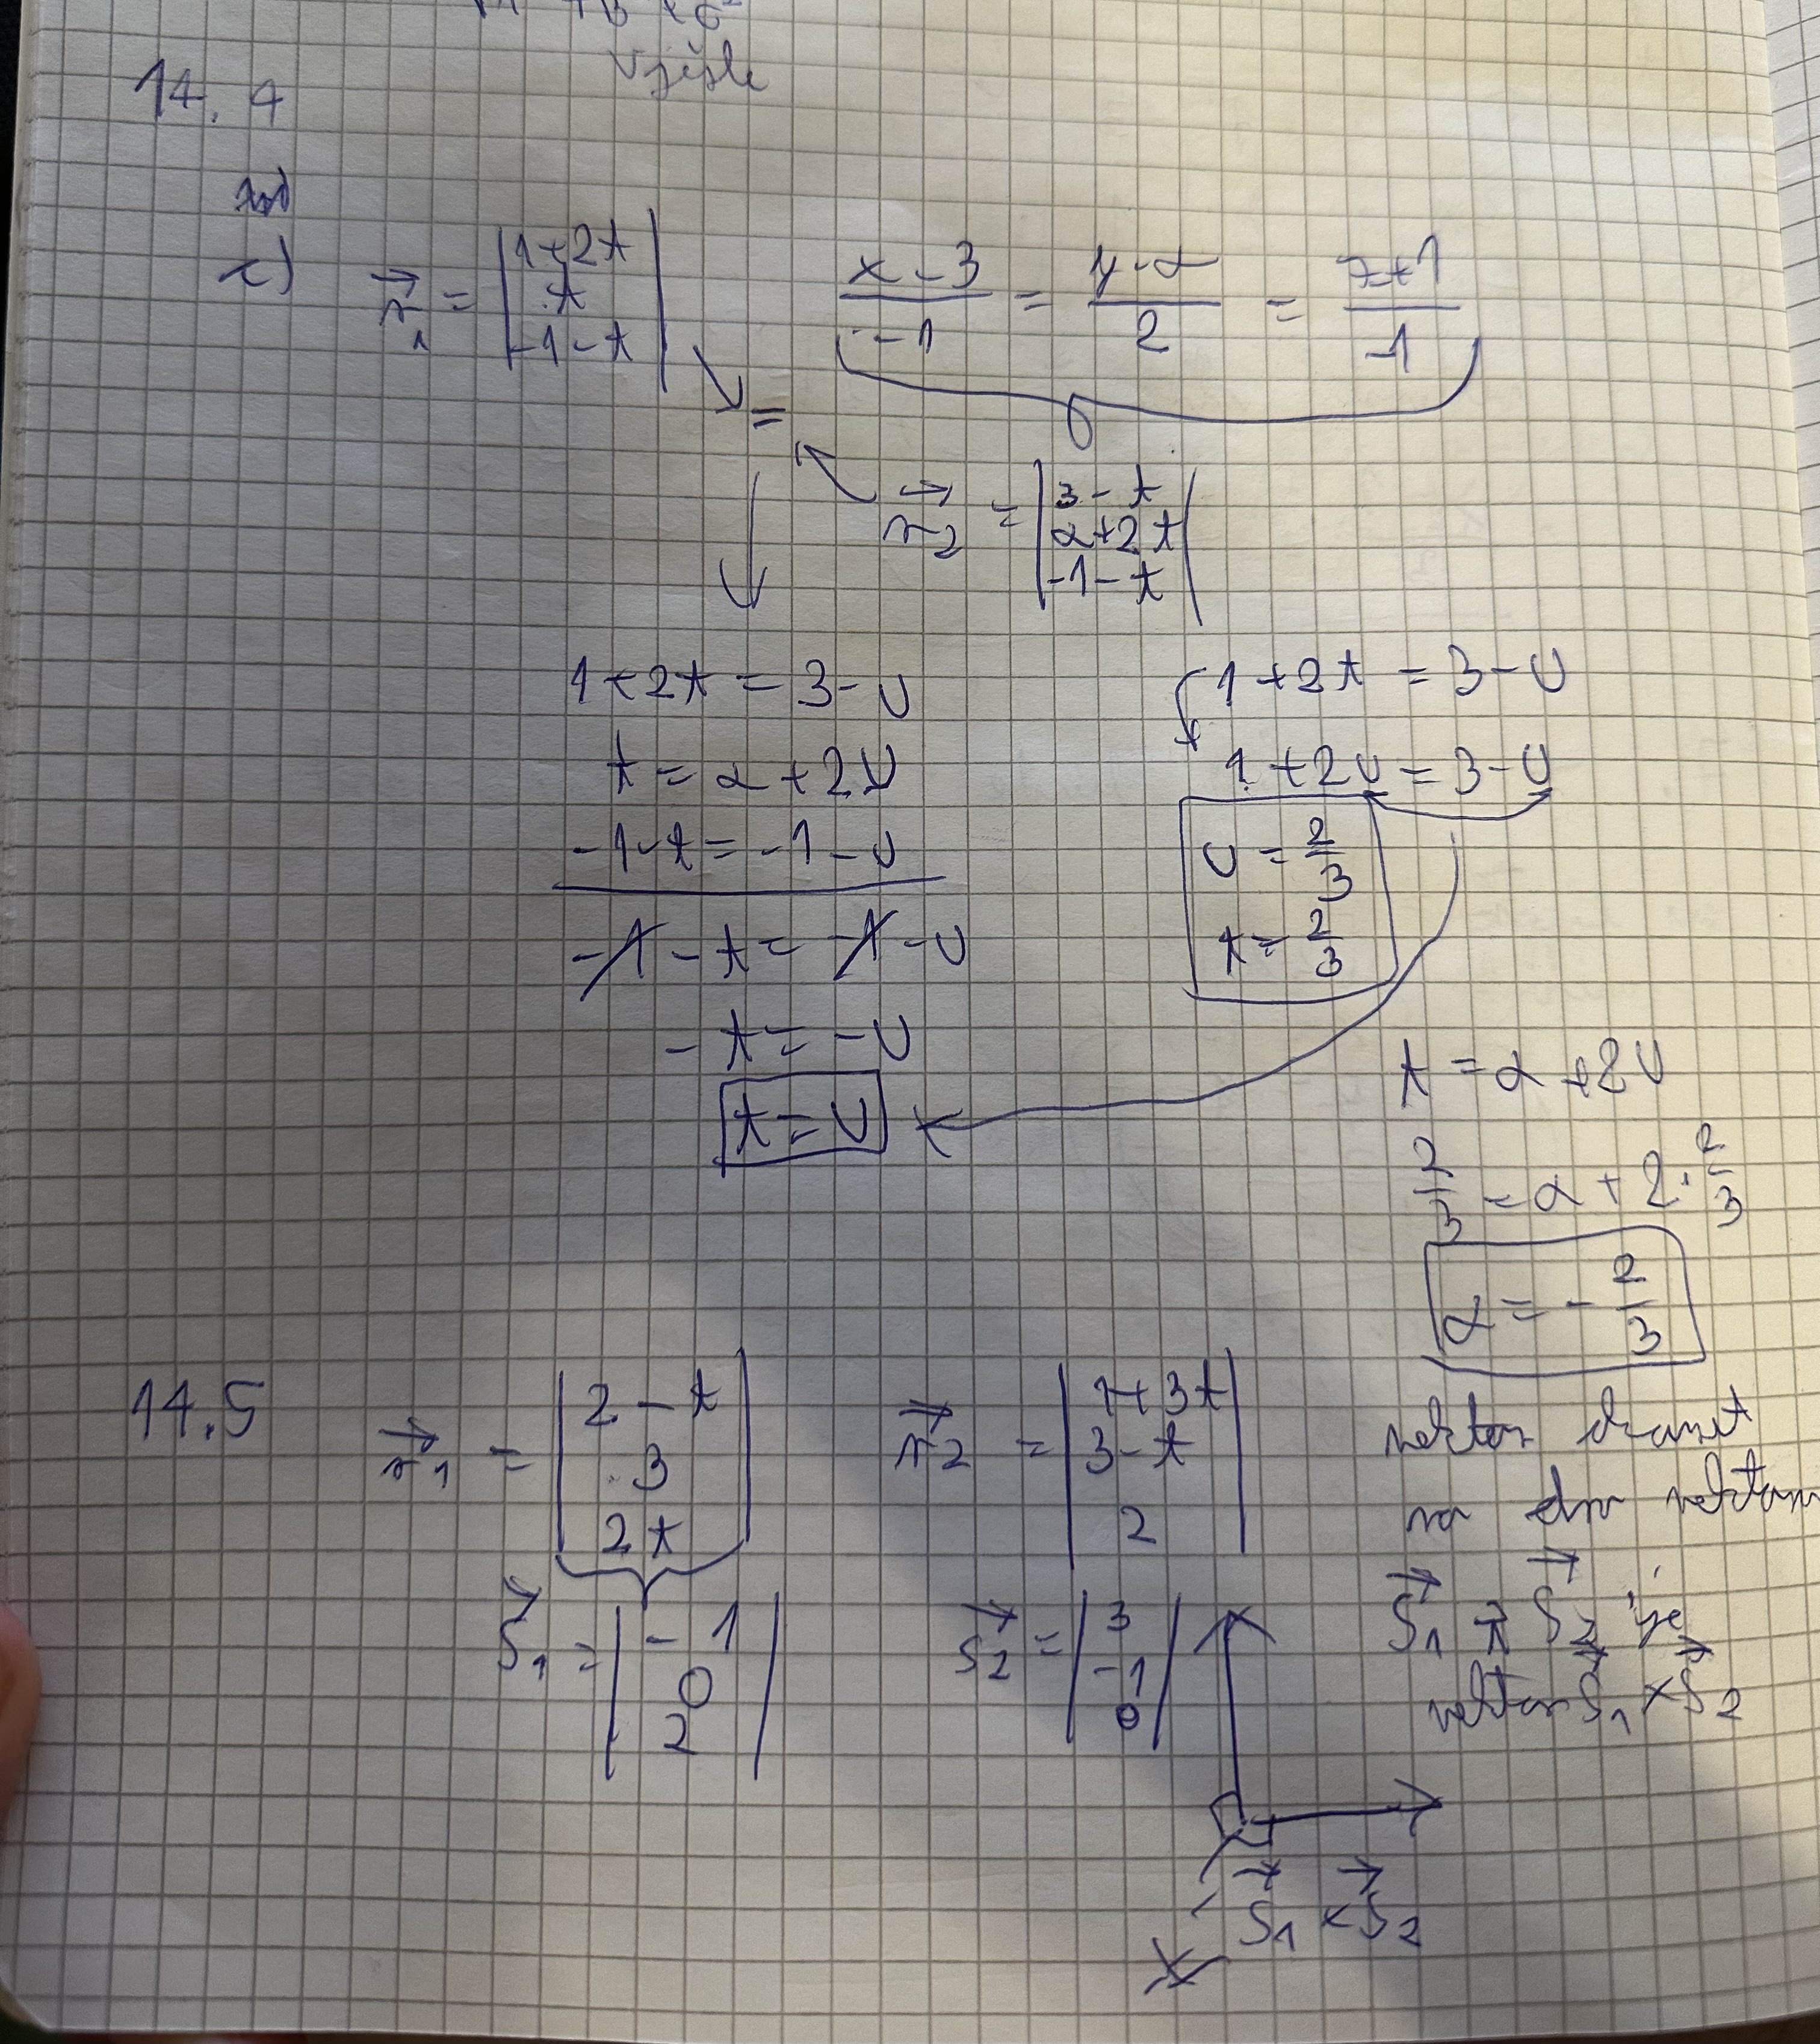 14. 4
c) r₁ = |1+2t, t, -1-t|
(x-3)/-1 = (y-α)/2 = (z+1)/-1
=
r₂ = |3-t, α+2t, -1-t|
1+2t = 3-U
t = α+2U
-1-t = -1-U
-1-t = -1-U
-t = -U
t = U
1+2t = 3-U
1+2U = 3-U
U = 2/3
t = 2/3
t = α+2U
2/3 = α+2·2/3
α = -2/3
14.5
r₁ = |2-t, 3, 2t|
r₂ = |1+3t, 3-t, 2|
S₁ = |-1, 0, 2|
S₂ = |3, -1, 0|
vektor
na vektora
S₁ S₂ je
vektor S₁×S₂
S₁×S₂